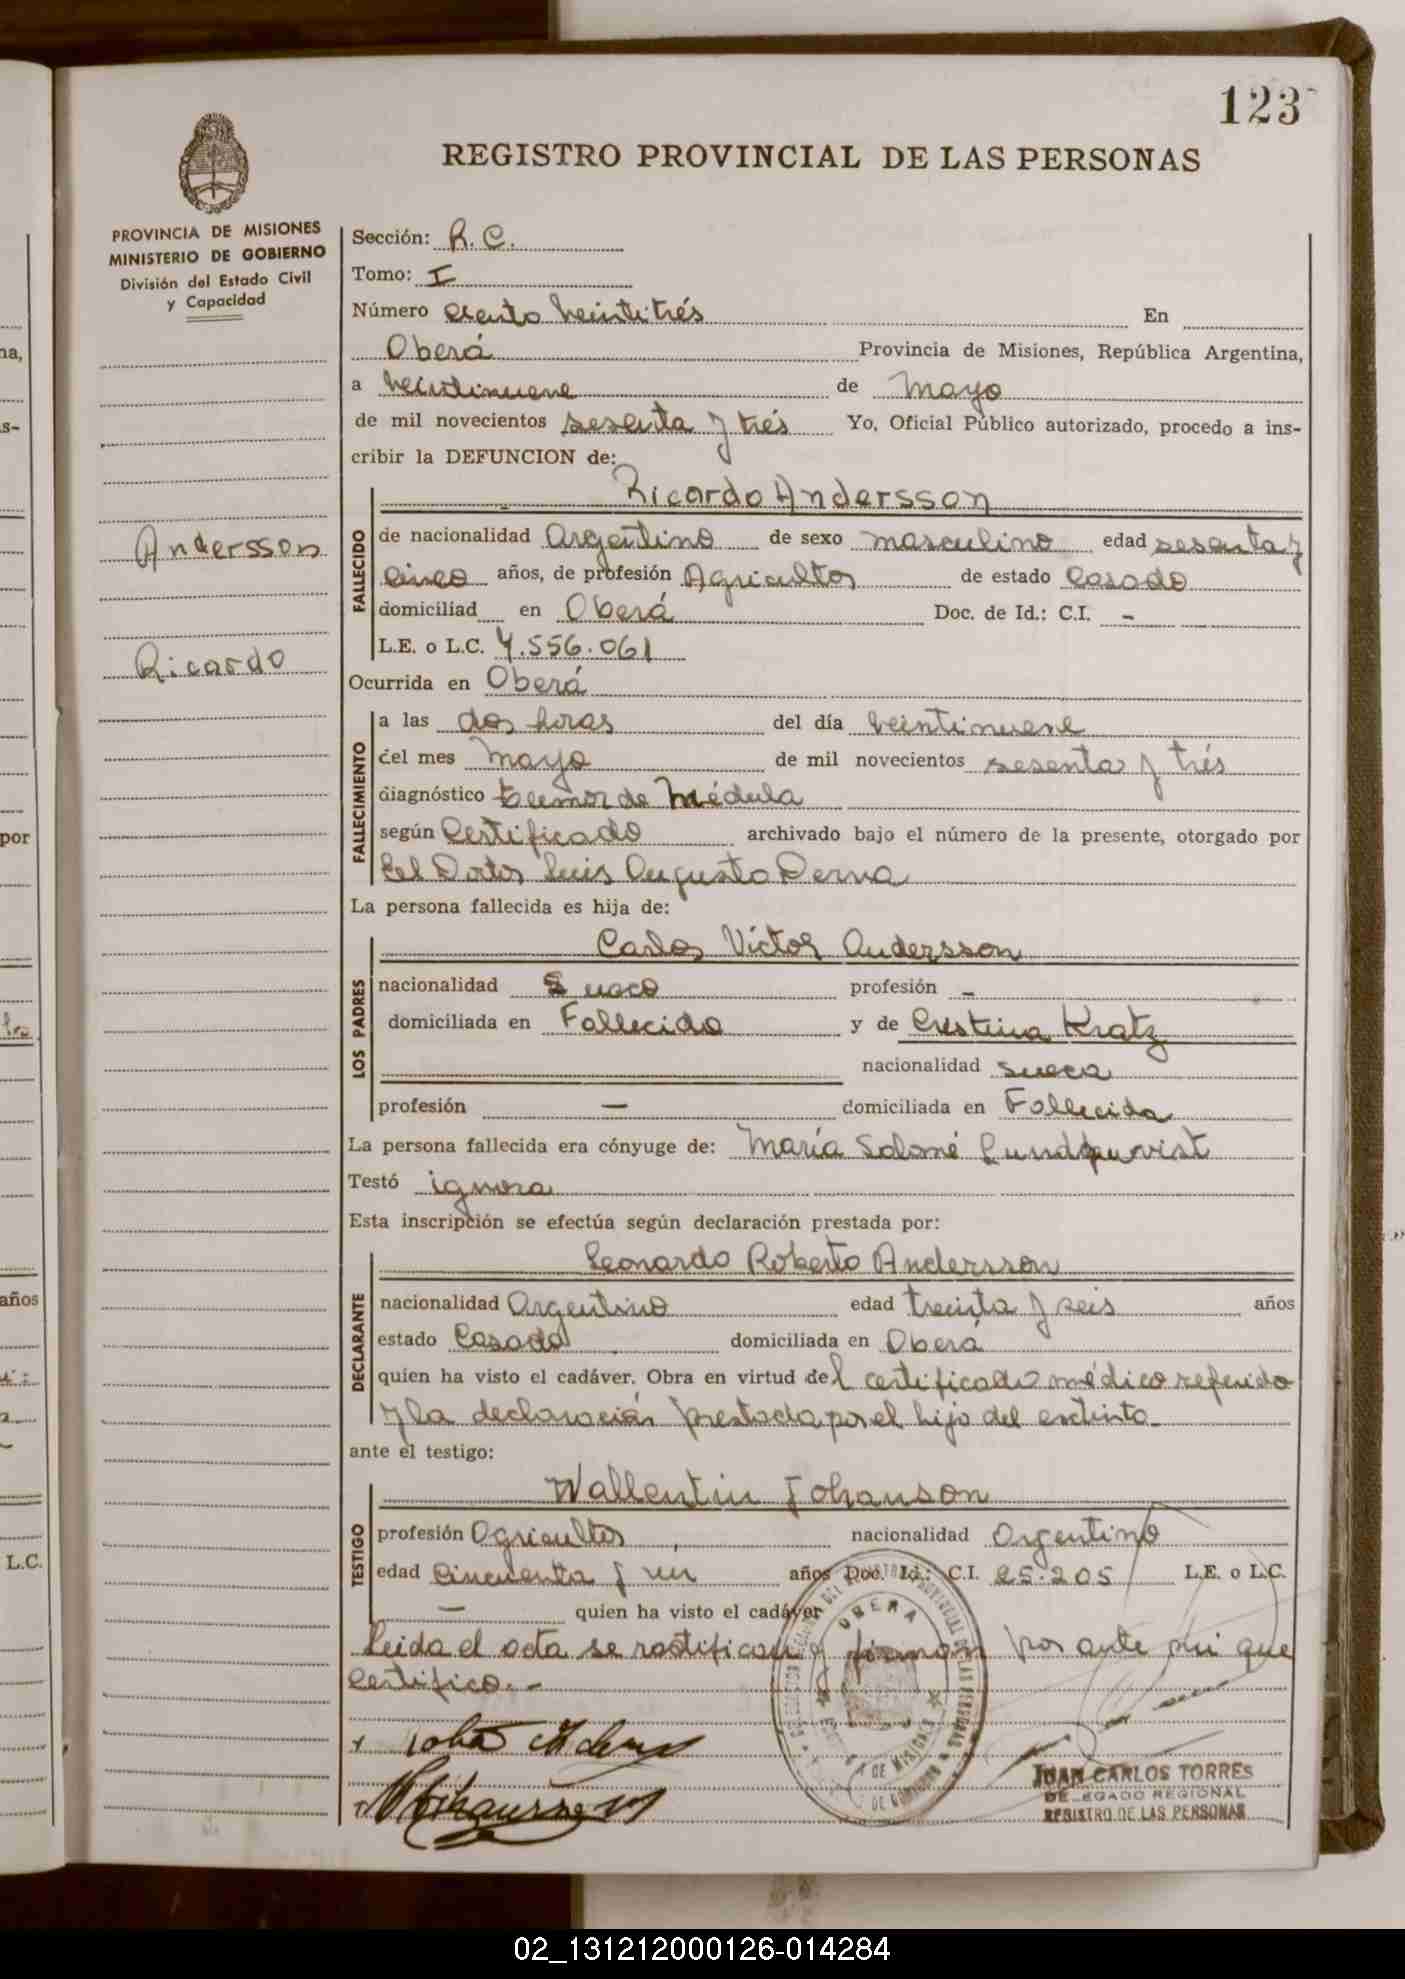 123
REGISTRO PROVINCIAL DE LAS PERSONAS
PROVINCIA DE MISIONES
MINISTERIO DE GOBIERNO
División del Estado Civil
y Capacidad
Andersson
Ricardo
Sección: R. C.
Tomo: I
Número ciento veintitrés En
Oberá Provincia de Misiones, República Argentina,
a veintinueve de Mayo
de mil novecientos sesenta y trés Yo, Oficial Público autorizado, procedo a ins-
cribir la DEFUNCION de:
Ricardo Andersson
FALLECIDO
de nacionalidad Argentino de sexo masculino edad sesenta y
cinco años, de profesión Agricultor de estado Casado
domiciliad en Oberá Doc. de Id.: C.I. -
L.E. o L.C. 7.556.061
Ocurrida en Oberá
FALLECIMIENTO
a las dos horas del día veintinueve
del mes Mayo de mil novecientos sesenta y trés
diagnóstico tumor de Médula
según Certificado archivado bajo el número de la presente, otorgado por
el Doctor Luis Augusto Derna
La persona fallecida es hija de:
Carlos Victor Andersson
LOS PADRES
nacionalidad Sueco profesión -
domiciliada en Fallecido y de Cristina Kratz
nacionalidad sueca
profesión - domiciliada en Fallecida
La persona fallecida era cónyuge de: María Salomé Lundquvist
Testó ignora
Esta inscripción se efectúa según declaración prestada por:
Leonardo Roberto Andersson
DECLARANTE
nacionalidad Argentino edad treinta y seis años
estado Casado domiciliada en Oberá
quien ha visto el cadáver. Obra en virtud del certificado médico referido
y la declaración prestada por el hijo del extinto.
ante el testigo:
Wallentin Johanson
TESTIGO
profesión Agricultor nacionalidad Argentino
edad cincuenta y un años Doc. Id.: C.I. 25.205 L.E. o L.C.
- quien ha visto el cadáver
Leida el acta se ratifican y firman por ante mi que
certifico.-
OBERA
JUAN CARLOS TORRES
DELEGADO REGIONAL
REGISTRO DE LAS PERSONAS
na,
s-
por
años
L.C.
02_131212000126-014284